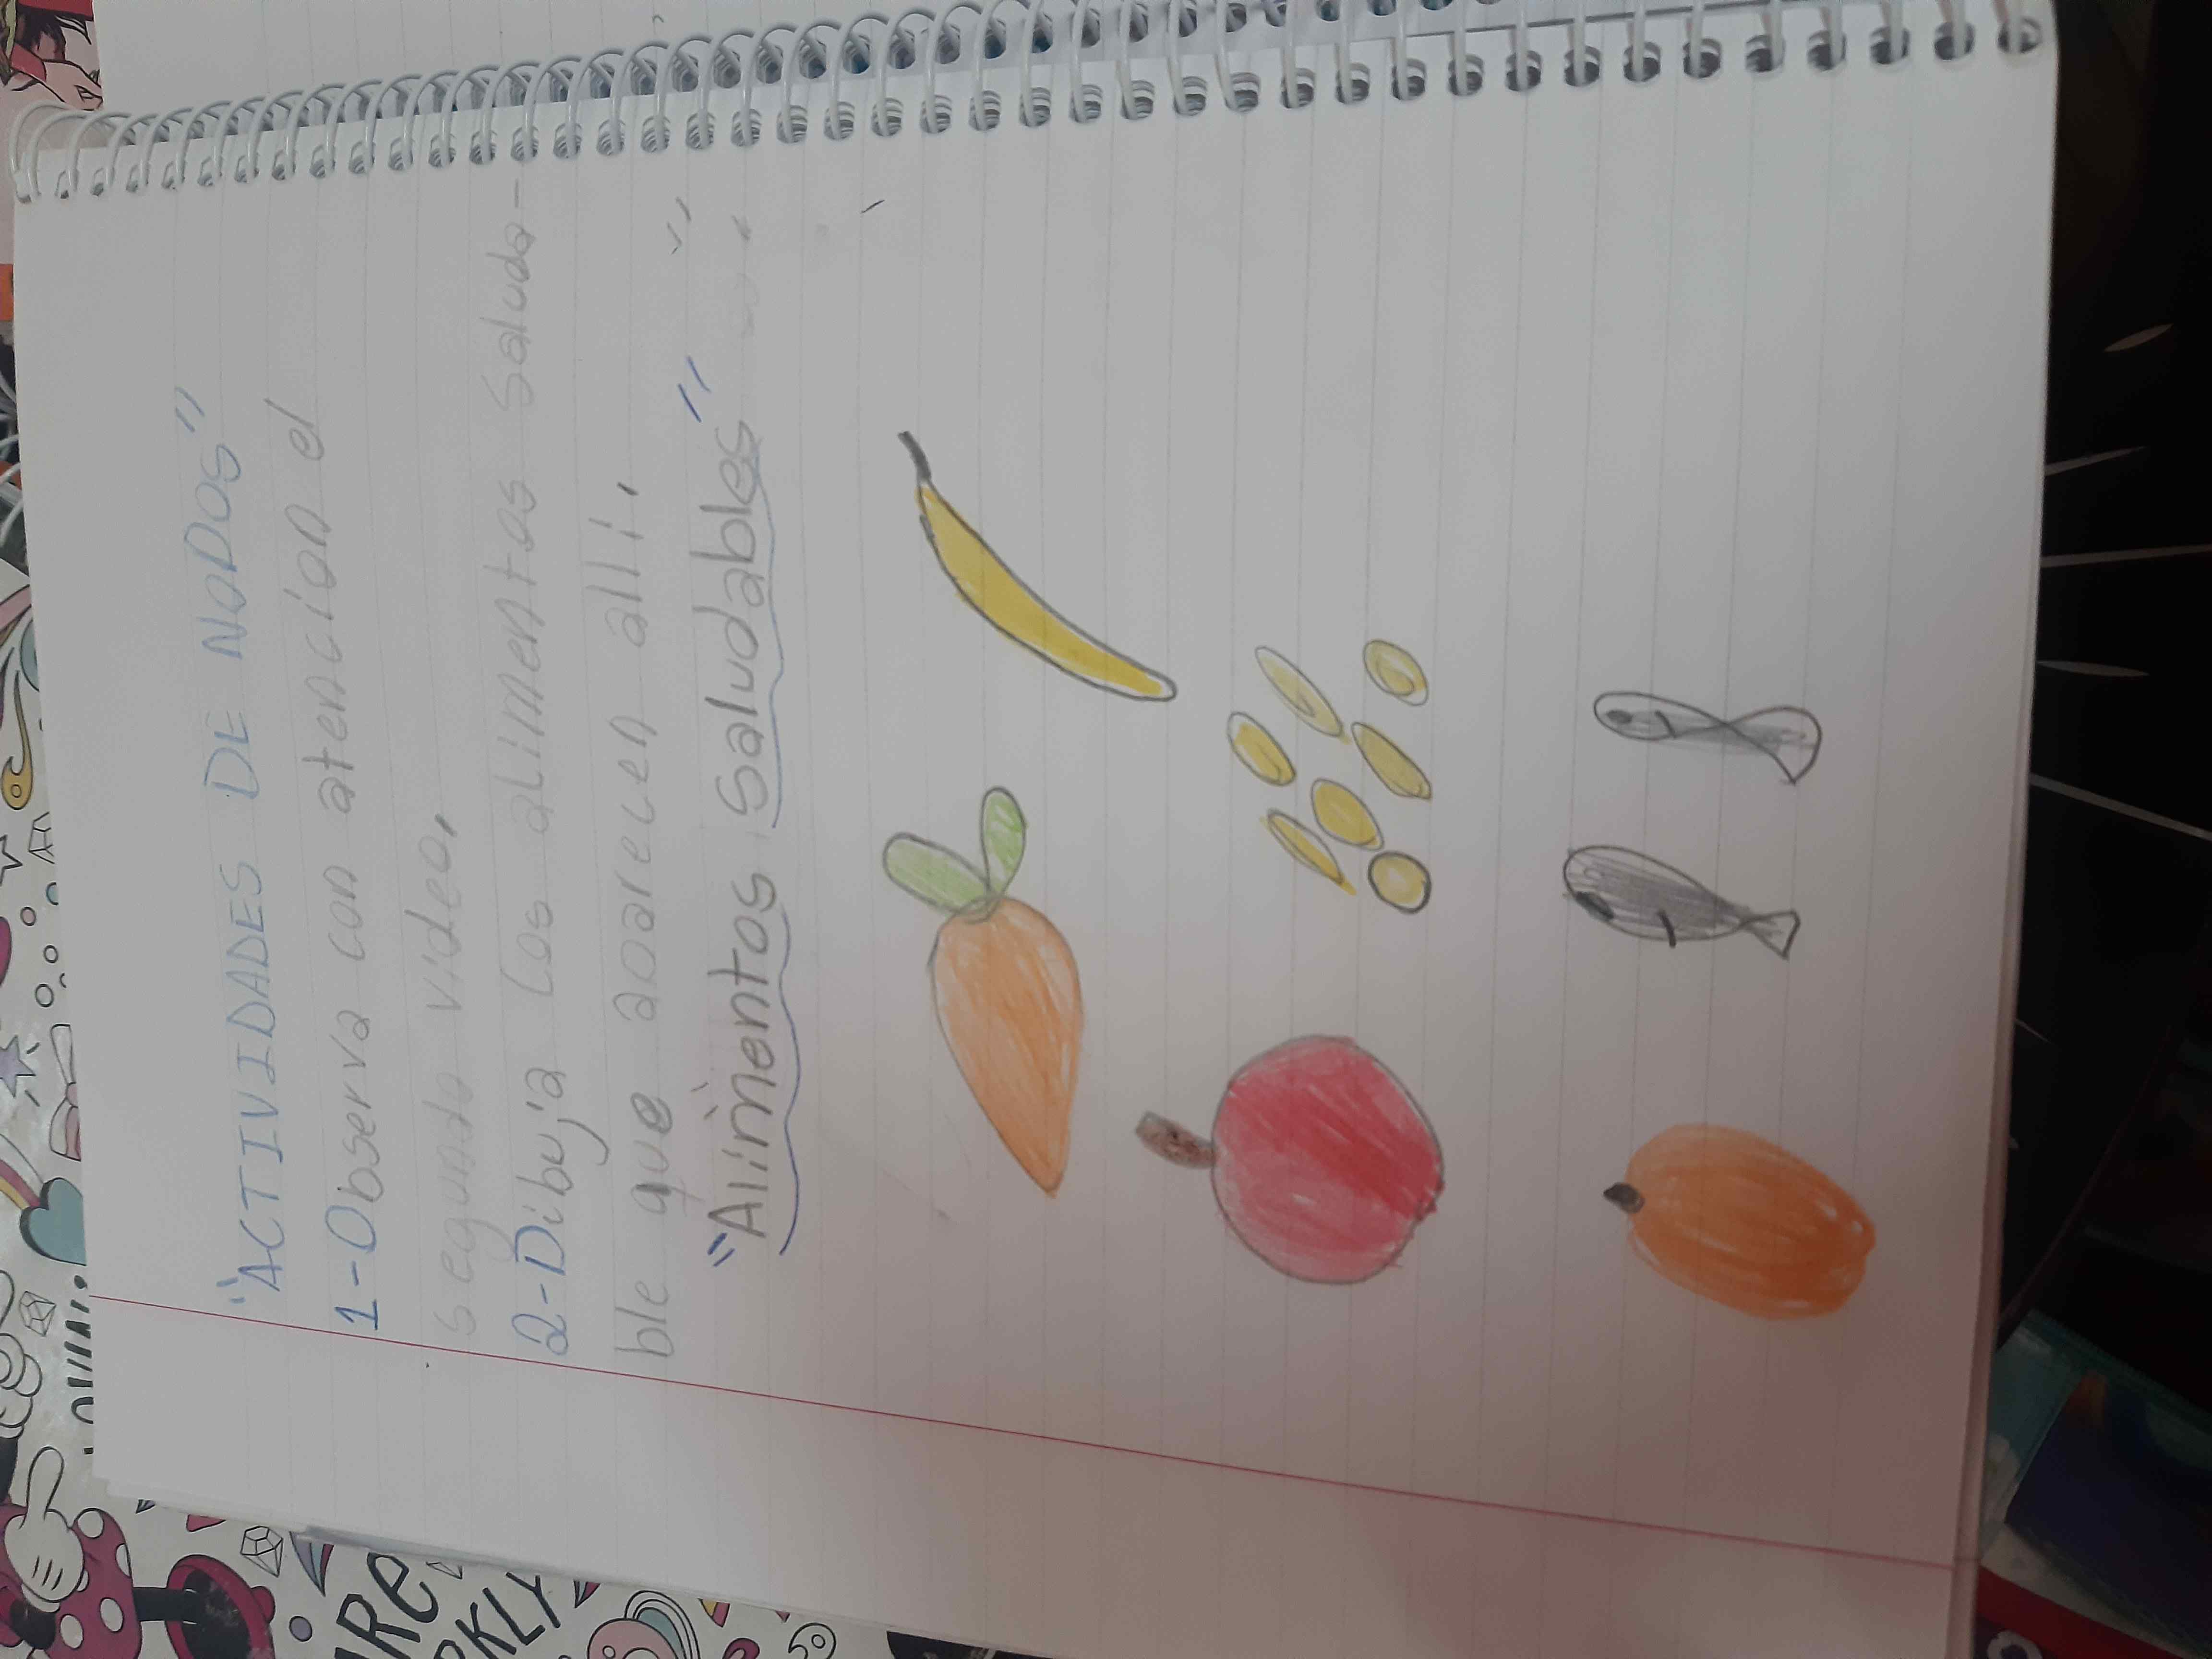 "ACTIVIDADES DE NODOS"
1-Observa con atención el
segundo video.
2-Dibuja los alimentos saluda-
ble que aparecen alli.
"Alimentos Saludables"